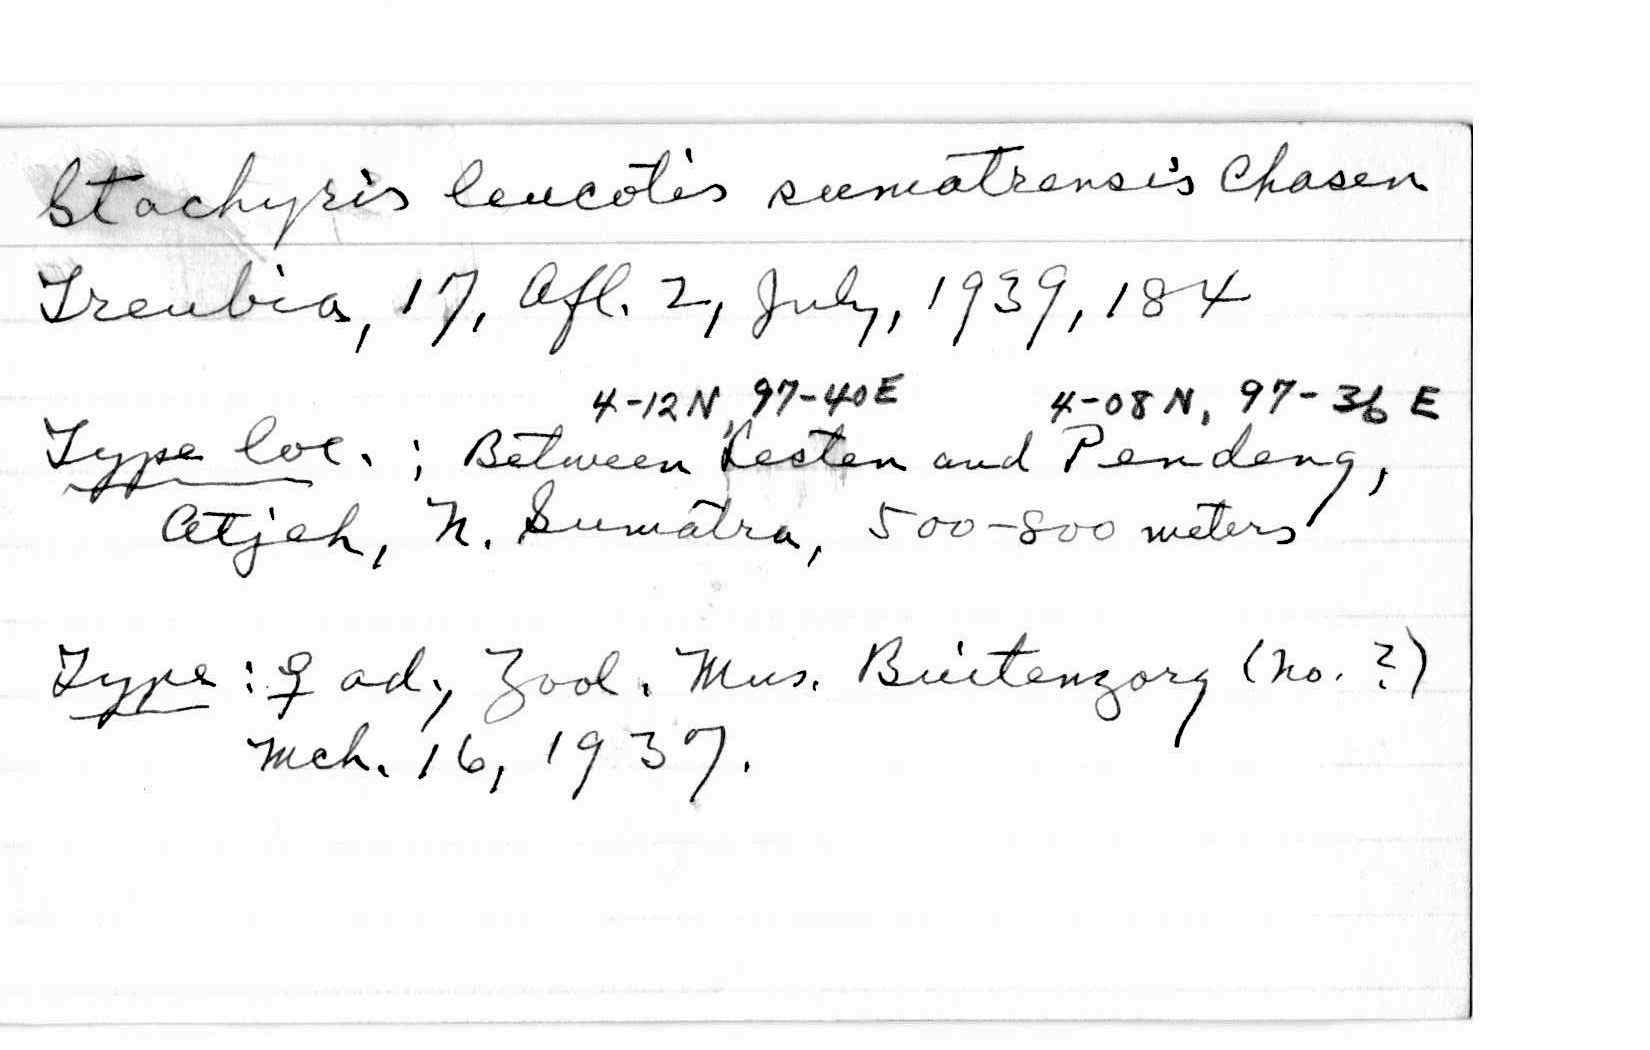 Stachyris leucotis sumatrensis Chasen
Treubia, 17, Afl. 2, July, 1939, 184
4-12N, 97-40E 4-08N, 97-36E
Type loc.; Between Lesten and Pendeng,
Atjeh, N. Sumatra, 500-800 meters
Type: ♀ ad., Zool. Mus. Buitenzorg (no. ?)
Mch. 16, 1937.